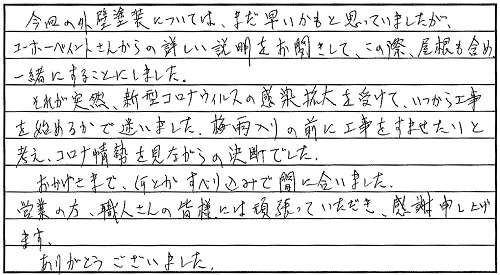 今回の外壁塗装については、まだ早いかもと思っていましたが、
ユーホーペイントさんからの詳しい説明をお聞きして、この際、屋根も含め、
一緒にすることにしました。
それが突然、新型コロナウィルスの感染拡大を受けて、いつから工事
を始めるかで迷いました。梅雨入りの前に工事をすませたいと
考え、コロナ情勢を見ながらの決断でした。
おかげさまで、何とかすべり込みで間に合いました。
営業の方、職人さんの皆様には頑張っていただき、感謝申し上げ
ます。
ありがとうございました。